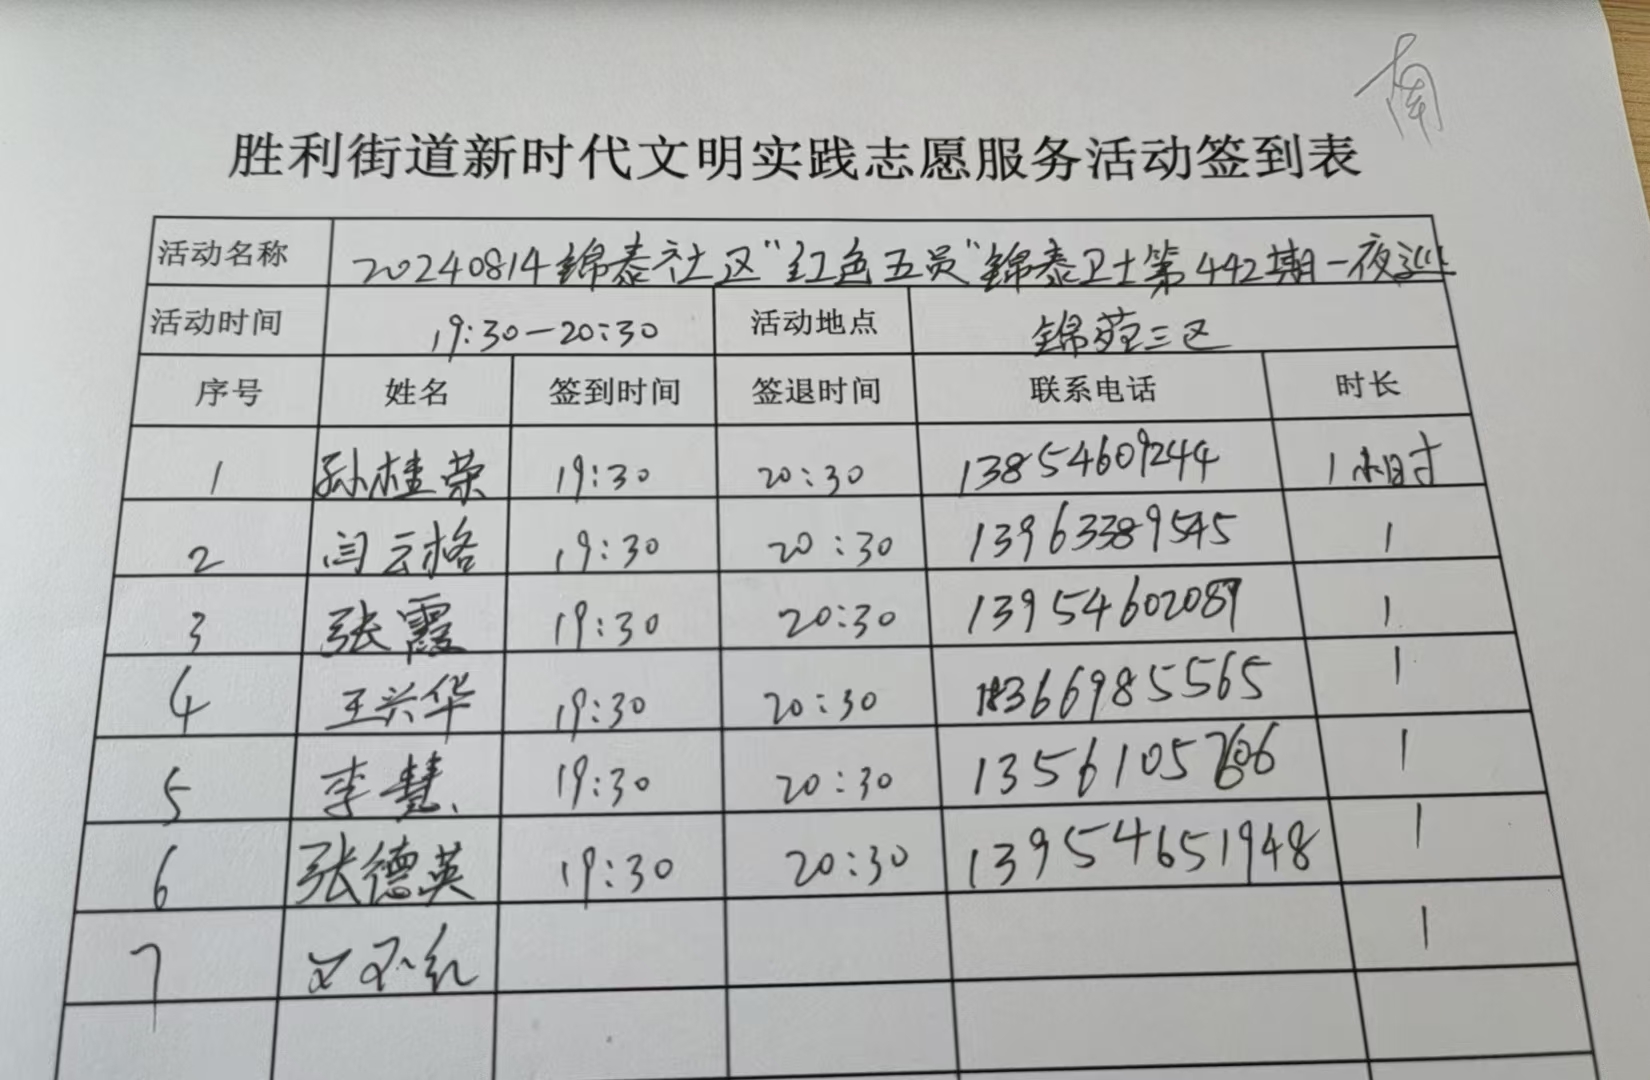 南
胜利街道新时代文明实践志愿服务活动签到表
活动名称 20240814锦泰社区"红色五员"锦泰卫士第442期一夜巡
活动时间 19:30—20:30 活动地点 锦苑三区
序号 姓名 签到时间 签退时间 联系电话 时长
1 孙桂荣 19:30 20:30 13854609244 1小时
2 闫云格 19:30 20:30 13963389545 1
3 张霞 19:30 20:30 13954602089 1
4 王兴华 19:30 20:30 13666985565 1
5 李慧 19:30 20:30 1
6 张德英 19:30 20:30 13954651948 1
7 1